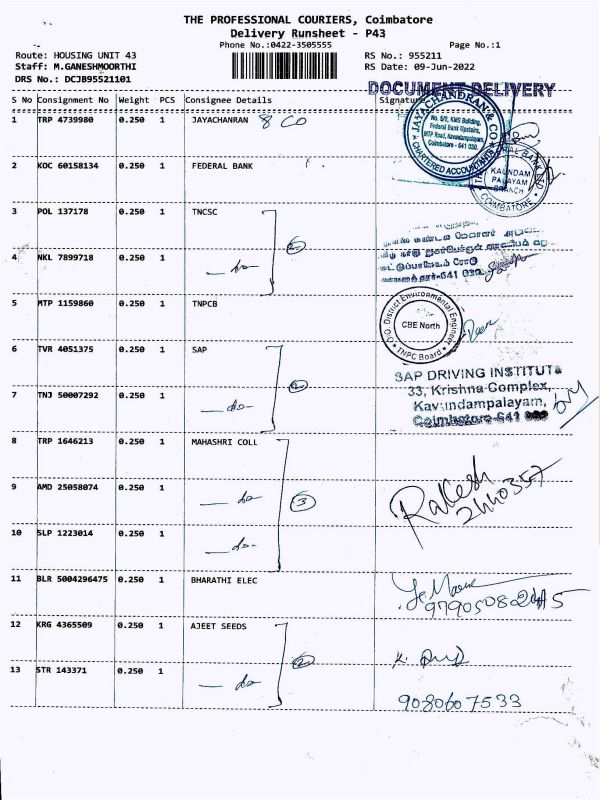 THE PROFESSIONAL COURIERS, Coimbatore
Delivery Runsheet - P43
Phone No.:0422-3505555
Page No.:1
Route: HOUSING UNIT 43
RS No.: 955211
Staff: M.GANESHMOORTHI
RS Date: 09-Jun-2022
DRS No.: DCJB95521101
DOCUMENT DELIVERY
S No Consignment No Weight PCS Consignee Details Signature
1 TRP 4739980 0.250 1 JAYACHANRAN & CO
JAYACHANDRAN & CO
No. 5/2, KMS Building,
Federal Bank Upstairs,
MTP Road, Kavundampalayam,
Coimbatore - 641 030.
CHARTERED ACCOUNTANTS
2 KOC 60158134 0.250 1 FEDERAL BANK
KAUNDAM
PALAYAM
BRANCH
COIMBATORE
3 POL 137178 0.250 1 TNCSC
4 NKL 7899718 0.250 1 — do — 2
5 MTP 1159860 0.250 1 TNPCB
O/O. District Environmental Engineer
CBE North
TNPC Board
6 TVR 4051375 0.250 1 SAP
7 TNJ 50007292 0.250 1 — do — 2
SAP DRIVING INSTITUTE
33, Krishna Complex,
Kavundampalayam,
Coimbatore-641
8 TRP 1646213 0.250 1 MAHASHRI COLL
9 AMD 25058074 0.250 1 — do 3
Rakesh
2440357
10 SLP 1223014 0.250 1 — do -
11 BLR 5004296475 0.250 1 BHARATHI ELEC
12 KRG 4365509 0.250 1 AJEET SEEDS
13 STR 143371 0.250 1 — do 2
9080607533